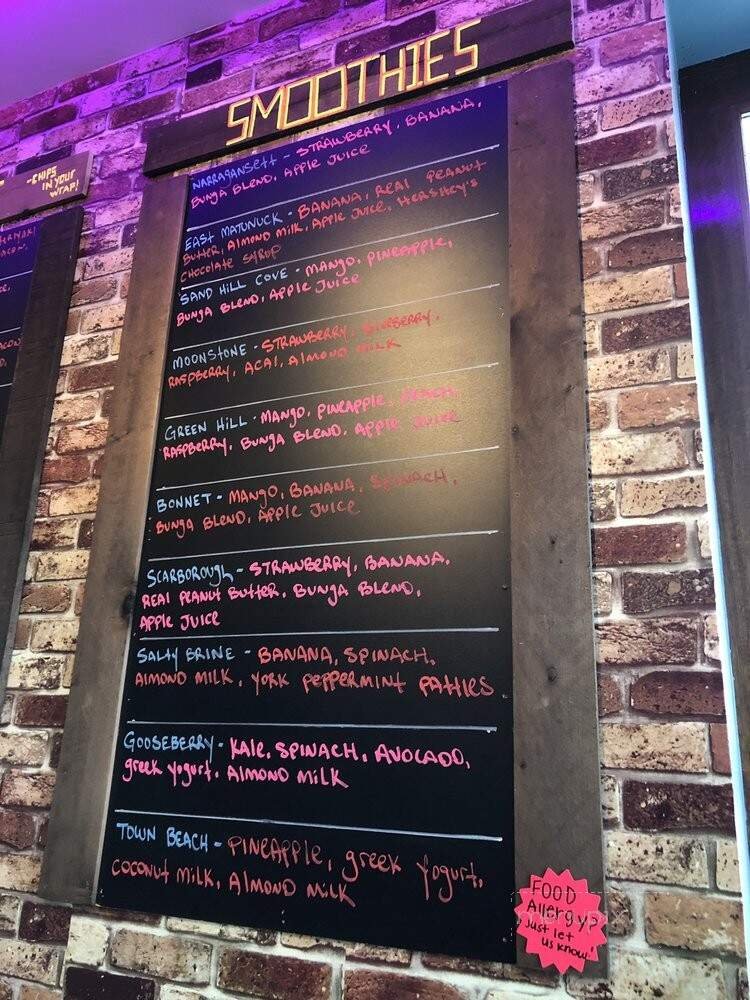 SMOOTHIES
-CHIPS
IN YOUR
WRAP!
NARRAGANSETT - STRAWBERRY, BANANA,
BUNGA BLEND, APPLE JUICE
EAST MATUNUCK - BANANA, REAL PEANUT
BUTTER, ALMOND MILK, APPLE JUICE, HERSHEY'S
CHOCOLATE SYRUP
SAND HILL COVE - MANGO, PINEAPPLE,
BUNGA BLEND, APPLE JUICE
MOONSTONE - STRAWBERRY, BLUEBERRY,
RASPBERRY, ACAI, ALMOND MILK
GREEN HILL - MANGO, PINEAPPLE, PEACH,
RASPBERRY, BUNGA BLEND, APPLE JUICE
BONNET - MANGO, BANANA, SPINACH,
BUNGA BLEND, APPLE JUICE
SCARBOROUGH - STRAWBERRY, BANANA,
REAL PEANUT BUTTER, BUNGA BLEND,
APPLE JUICE
SALTY BRINE - BANANA, SPINACH,
ALMOND MILK, YORK PEPPERMINT PATTIES
GOOSEBERRY - KALE, SPINACH, AVOCADO,
greek yogurt, ALMOND MILK
TOWN BEACH - PINEAPPLE, greek yogurt,
COCONUT MILK, ALMOND MILK
FOOD
Allergy?
Just let
us know!